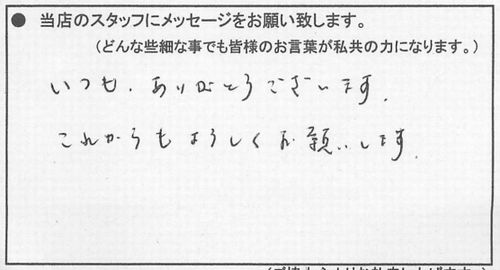 ● 当店のスタッフにメッセージをお願い致します。
（どんな些細な事でも皆様のお言葉が私共の力になります。）
いつも、ありがとうございます。
これからもよろしくお願いします。